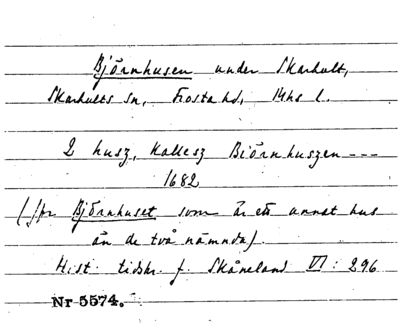 Björnhusen under Skarhult,
Skarhults sn, Frosta hd, Mhs l.
2 husz, kallesz Biörnhuszen ---
1682
(Jfr Björnhuset som är ett annat hus
än de två nämnda).
Hist. tidskr. f. Skåneland VI: 296
Nr 5574.